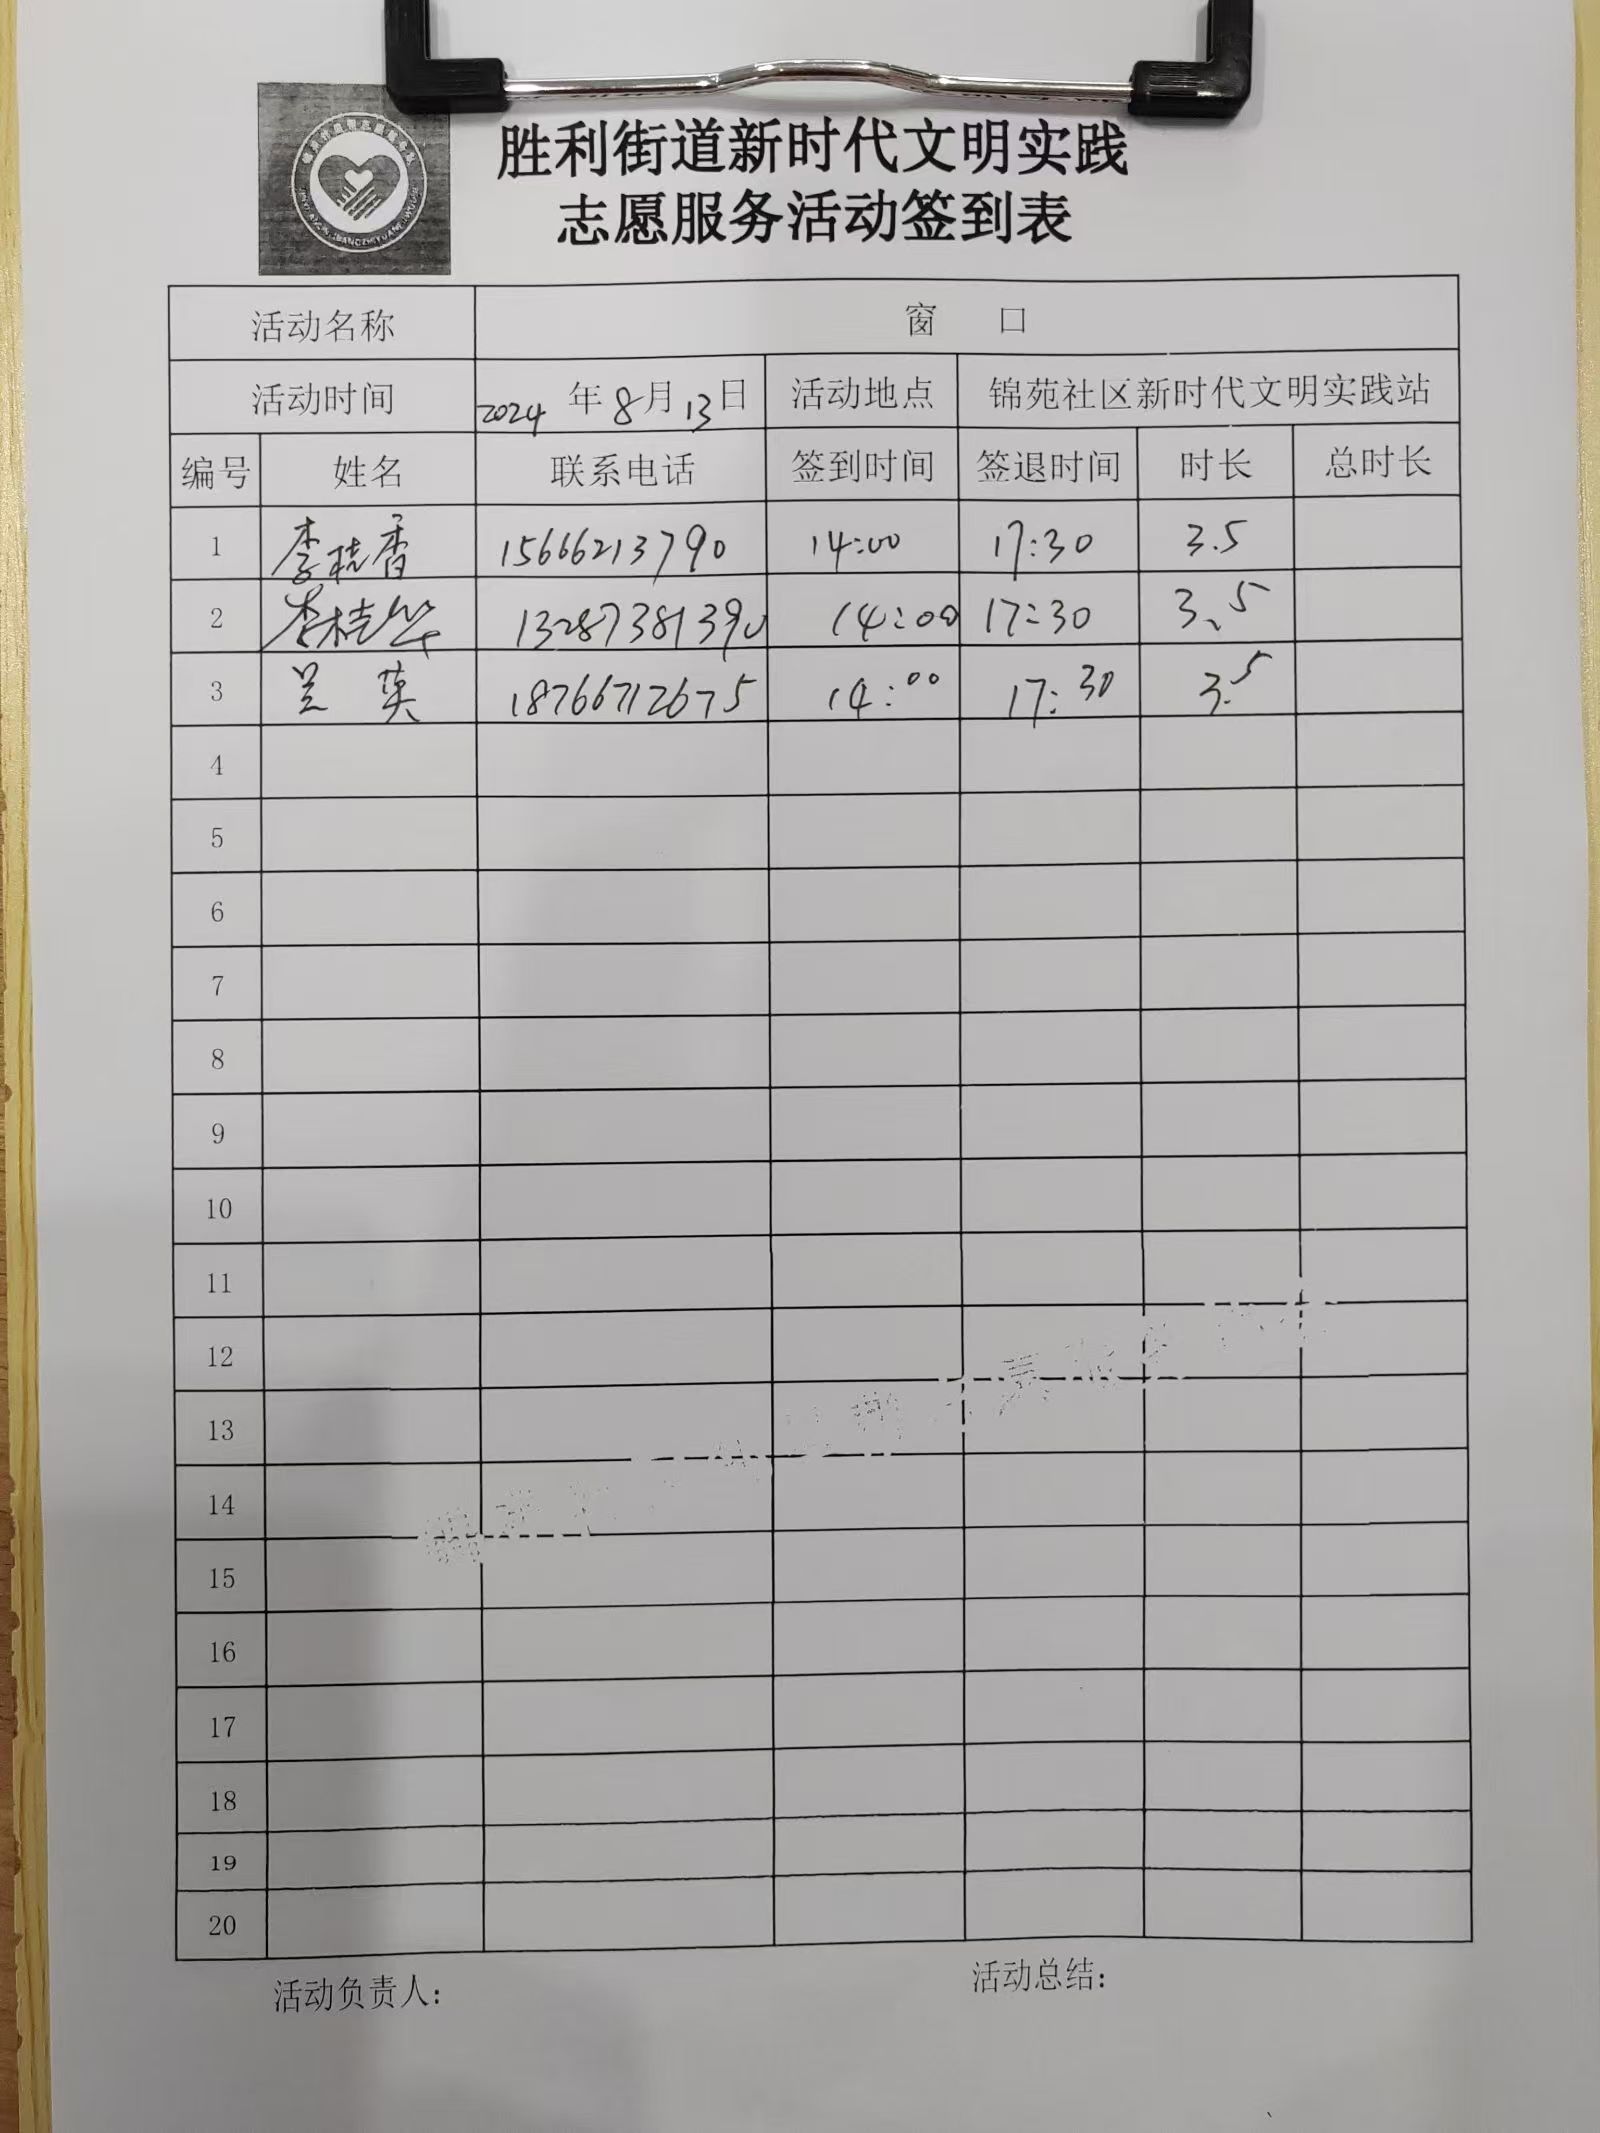 胜利街道新时代文明实践
志愿服务活动签到表
活动名称 窗 口
活动时间 2024 年 8 月 13 日 活动地点 锦苑社区新时代文明实践站
编号 姓名 联系电话 签到时间 签退时间 时长 总时长
1 李晓香 15666213790 14:00 17:30 3.5
2 李桂华 13287381390 14:00 17:30 3.5
3 兰 英 18766712675 14:00 17:30 3.5
4
5
6
7
8
9
10
11
12
13
14
15
16
17
18
19
20
活动负责人: 活动总结: